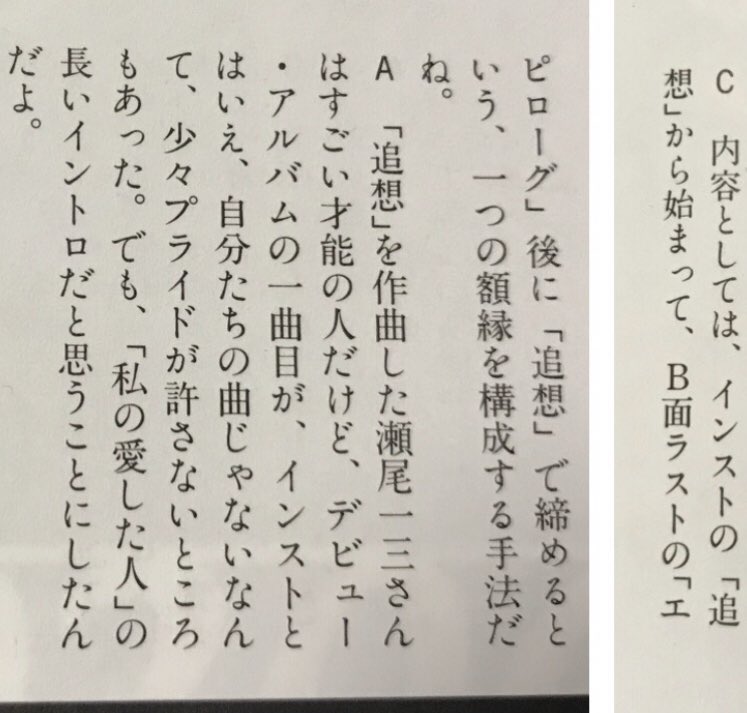 C　内容としては、インストの「追
想」から始まって、B面ラストの「エ
ピローグ」後に「追想」で締めると
いう、一つの額縁を構成する手法だ
ね。
A　「追想」を作曲した瀬尾一三さん
はすごい才能の人だけど、デビュー
・アルバムの一曲目が、インストと
はいえ、自分たちの曲じゃないなん
て、少々プライドが許さないところ
もあった。でも、「私の愛した人」の
長いイントロだと思うことにしたん
だよ。